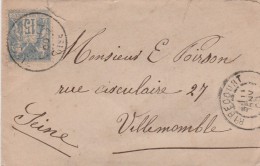 15
Monsieur E Poisson
rue circulaire 27
Villemomble
Seine
RIBECOURT